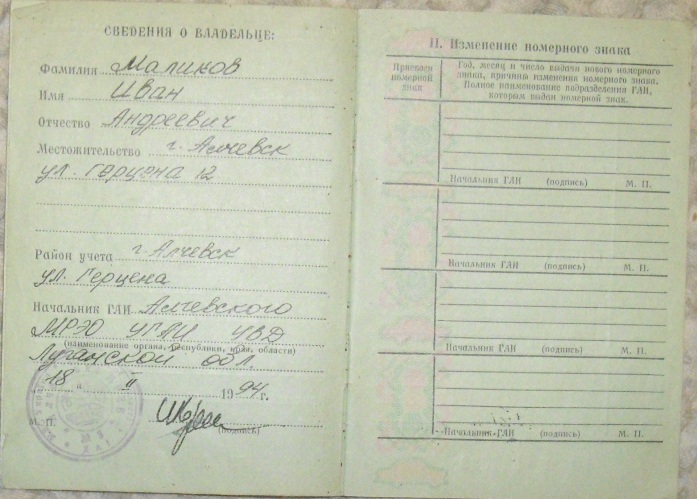 СВЕДЕНИЯ О ВЛАДЕЛЬЦЕ:
Фамилия Маликов
Имя Иван
Отчество Андреевич
Местожительство г. Алчевск
ул. Герцена 12
Район учета г. Алчевск
ул. Герцена
Начальник ГАИ Алчевского
МРЭО УГАИ УВД
(наименование органа, республики, края, области)
Луганской обл.
18 " II 1994 г.
М. П.
(подпись)
II. Изменение номерного знака
Присвоен номерной знак
Год, месяц и число выдачи нового номерного
знака, причина изменения номерного знака.
Полное наименование подразделения ГАИ,
которым выдан номерной знак.
Начальник ГАИ (подпись) М. П.
Начальник ГАИ (подпись) М. П.
Начальник ГАИ (подпись) М. П.
Начальник ГАИ (подпись) М. П.